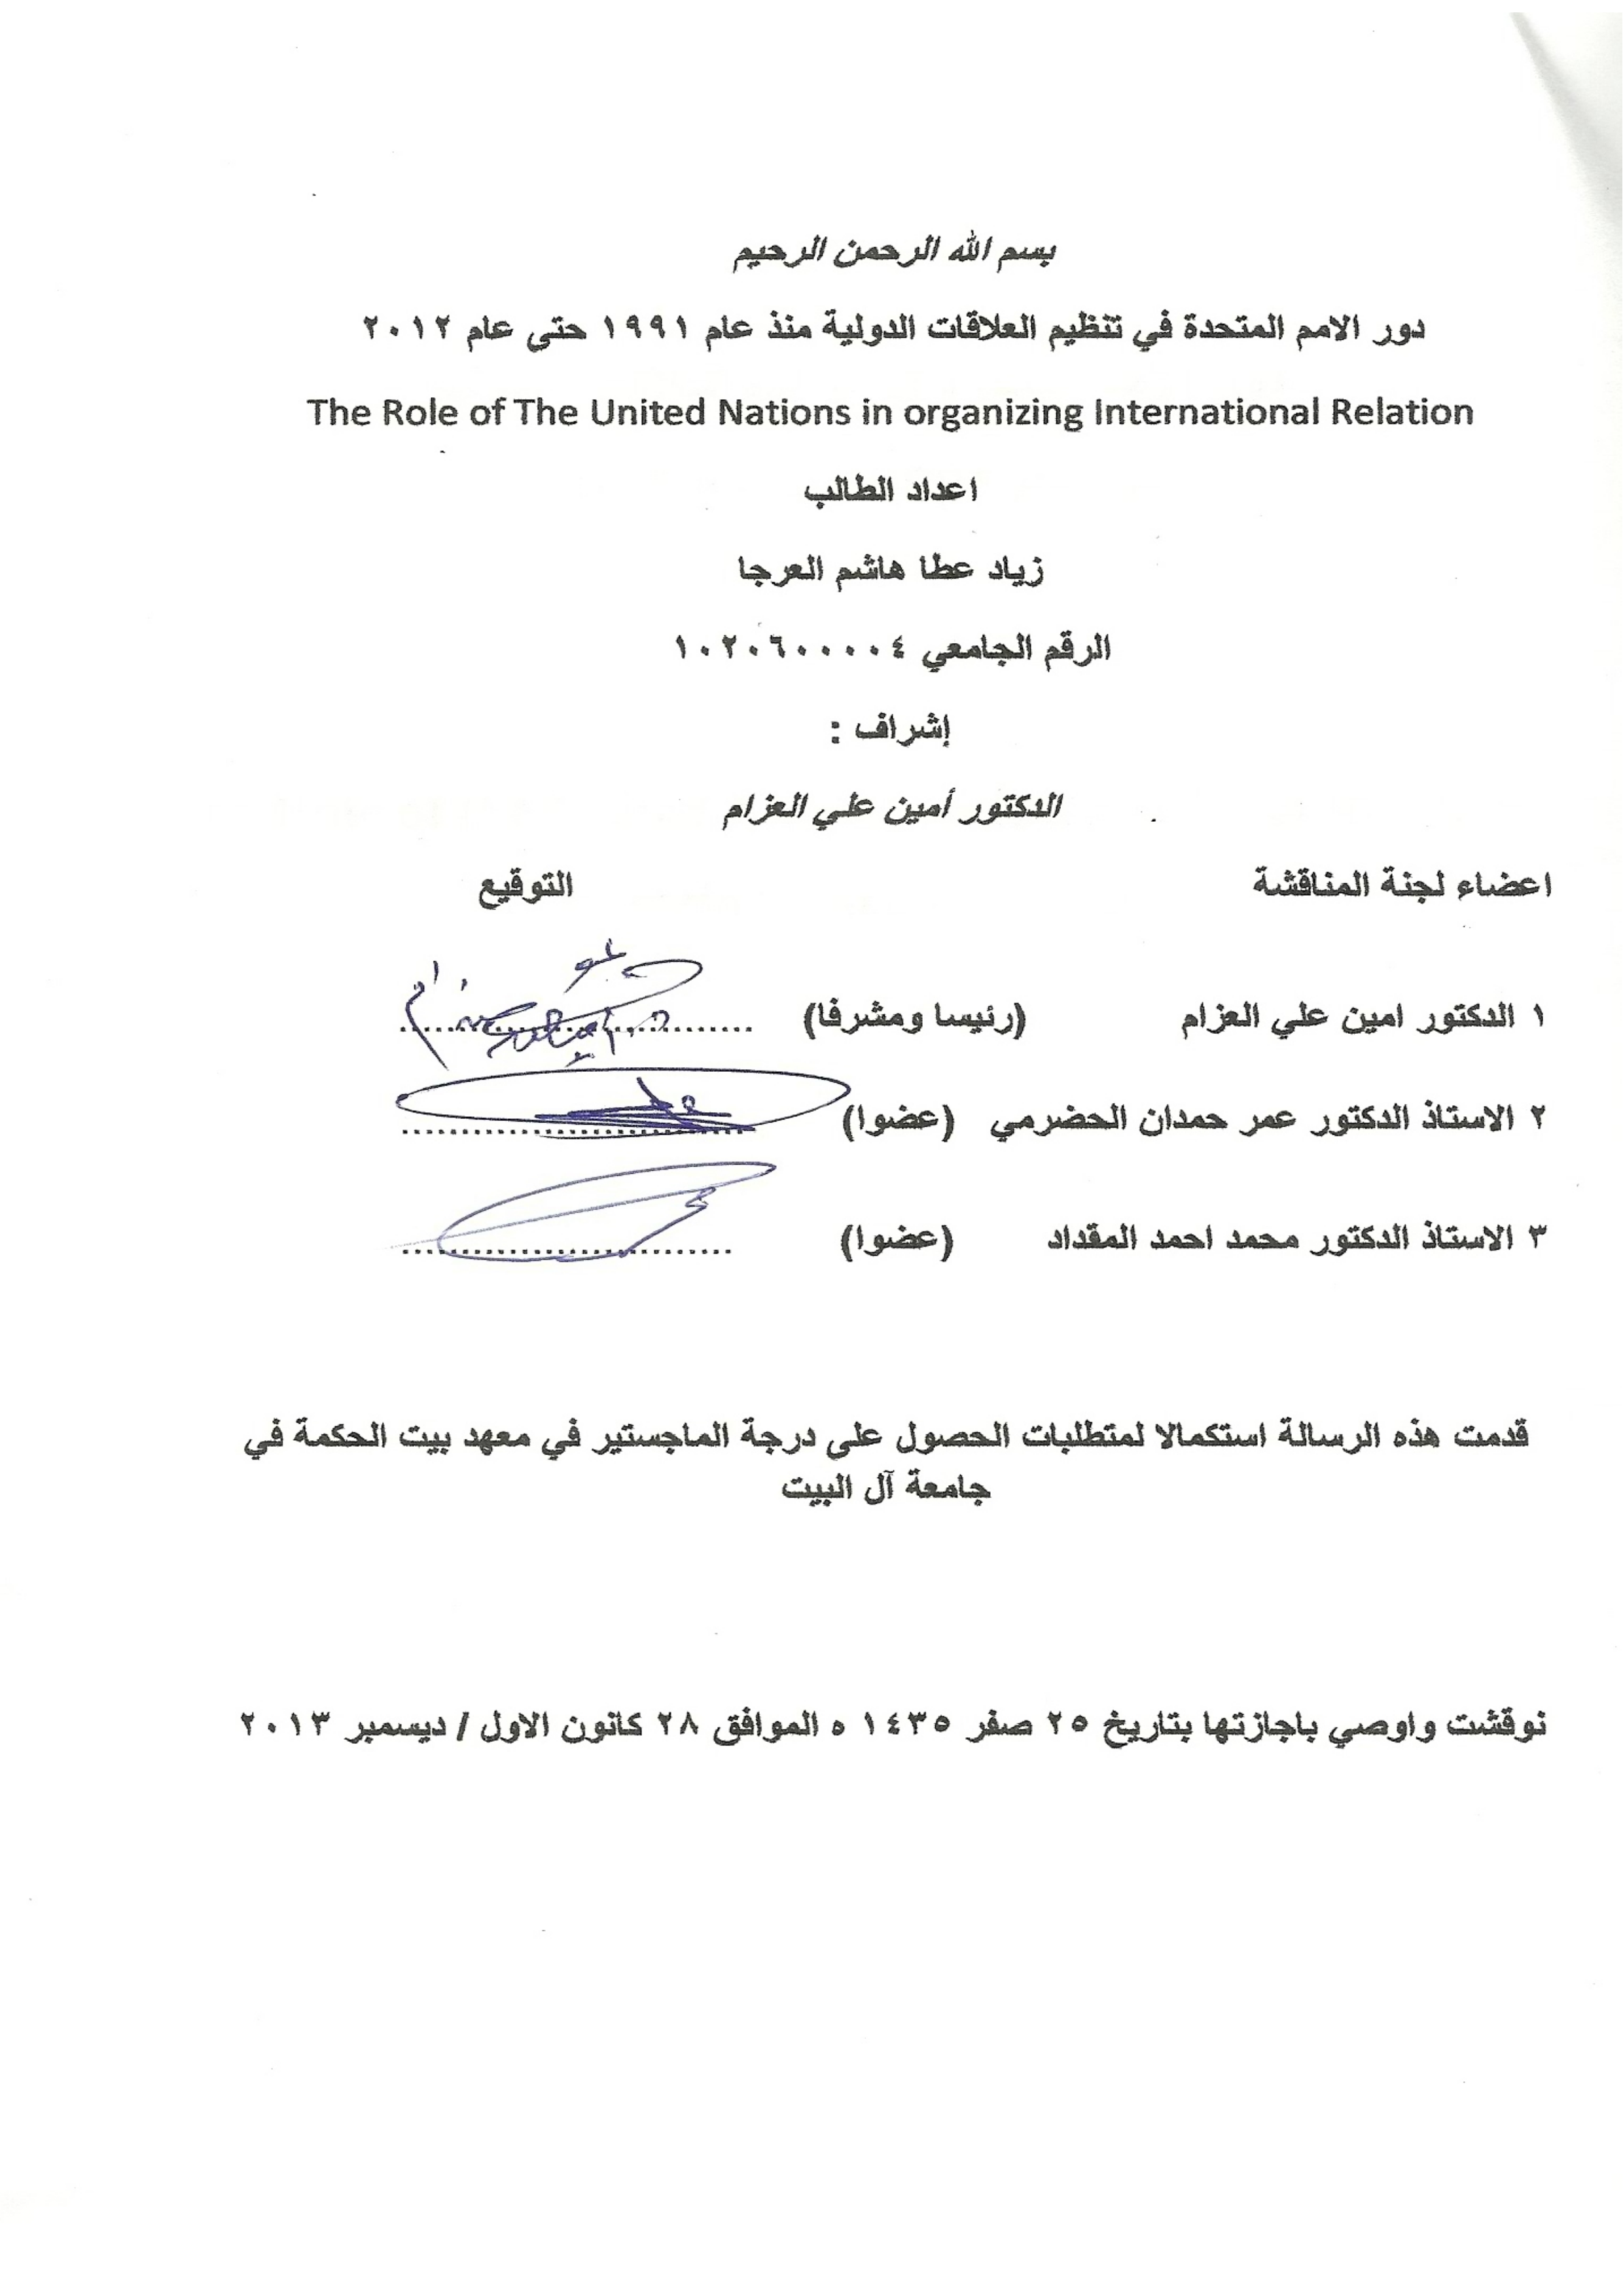 بسم الله الرحمن الرحيم
دور الامم المتحدة في تنظيم العلاقات الدولية منذ عام ١٩٩١ حتى عام ٢٠١٢
The Role of The United Nations in organizing International Relation
اعداد الطالب
زياد عطا هاشم العرجا
الرقم الجامعي ١٠٢٠٦٠٠٠٠٤
إشراف :
الدكتور أمين علي العزام
اعضاء لجنة المناقشة التوقيع
١ الدكتور امين علي العزام (رئيسا ومشرفا) ..............................
٢ الاستاذ الدكتور عمر حمدان الحضرمي (عضوا) ..............................
٣ الاستاذ الدكتور محمد احمد المقداد (عضوا) ..............................
قدمت هذه الرسالة استكمالا لمتطلبات الحصول على درجة الماجستير في معهد بيت الحكمة في
جامعة آل البيت
نوقشت واوصي باجازتها بتاريخ ٢٥ صفر ١٤٣٥ ه الموافق ٢٨ كانون الاول / ديسمبر ٢٠١٣